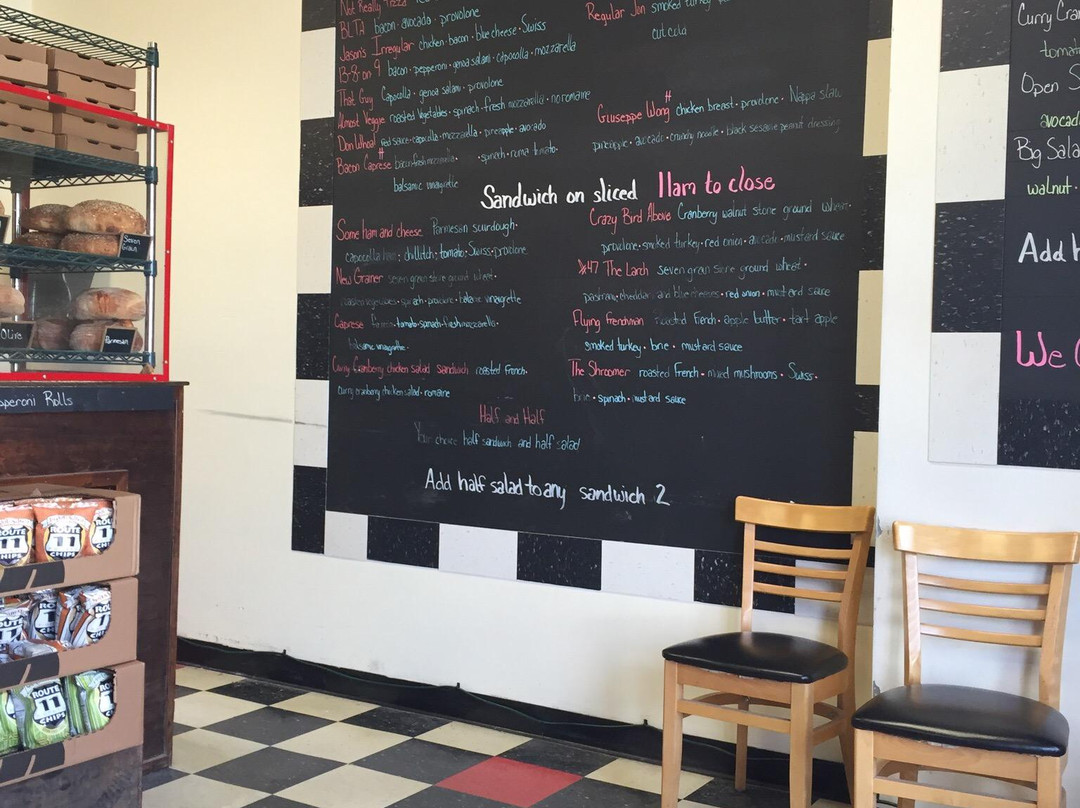 Not Really Pizza
BLTA bacon • avocado • provolone
Jason's Irregular chicken • bacon • blue cheese • Swiss
B-8-on 9 bacon • pepperoni • genoa salami • capocolla • mozzarella
That Guy Capocolla • genoa salami • provolone
Almost Veggie roasted vegetables • spinach • fresh mozzarella • no romaine
Don Whoa! red sauce • capocolla • mozzarella • pineapple • avocado
Bacon Caprese # bacon • fresh mozzarella • spinach • roma tomato •
balsamic vinaigrette
Regular Jon smoked turkey
Giuseppe Wong # chicken breast • provolone • Nappa slaw
pineapple • avocado • crunchy noodle • black sesame peanut dressing
Sandwich on sliced 11am to close
Some ham and cheese Parmesan sourdough •
capocolla • tomato • Swiss • provolone
New Grainer seven grain stone ground wheat •
roasted vegetables • spinach • provolone • balsamic vinaigrette
Caprese • tomato • spinach • fresh mozzarella •
balsamic vinaigrette
Curry Cranberry chicken salad sandwich roasted French •
curry cranberry chicken salad • romaine
Crazy Bird Above Cranberry walnut stone ground wheat •
provolone • smoked turkey • red onion • avocado • mustard sauce
#47 The Larch seven grain stone ground wheat •
pastrami • cheddar and blue cheeses • red onion • mustard sauce
Flying Frenchman roasted French • apple butter • tart apple
smoked turkey • brie • mustard sauce
The Shroomer roasted French • mixed mushrooms • Swiss •
brie • spinach • mustard sauce
Half and Half
Your choice half sandwich and half salad
Add half salad to any sandwich 2
Curry Cran
tomat
Open S
avocad
Big Sala
walnut •
Add h
We
Seven
Grain
Olive
Parmesan
pperoni Rolls
ROUTE
11
CHIPS
ROUTE
11
CHIPS
ROUTE
11
CHIPS